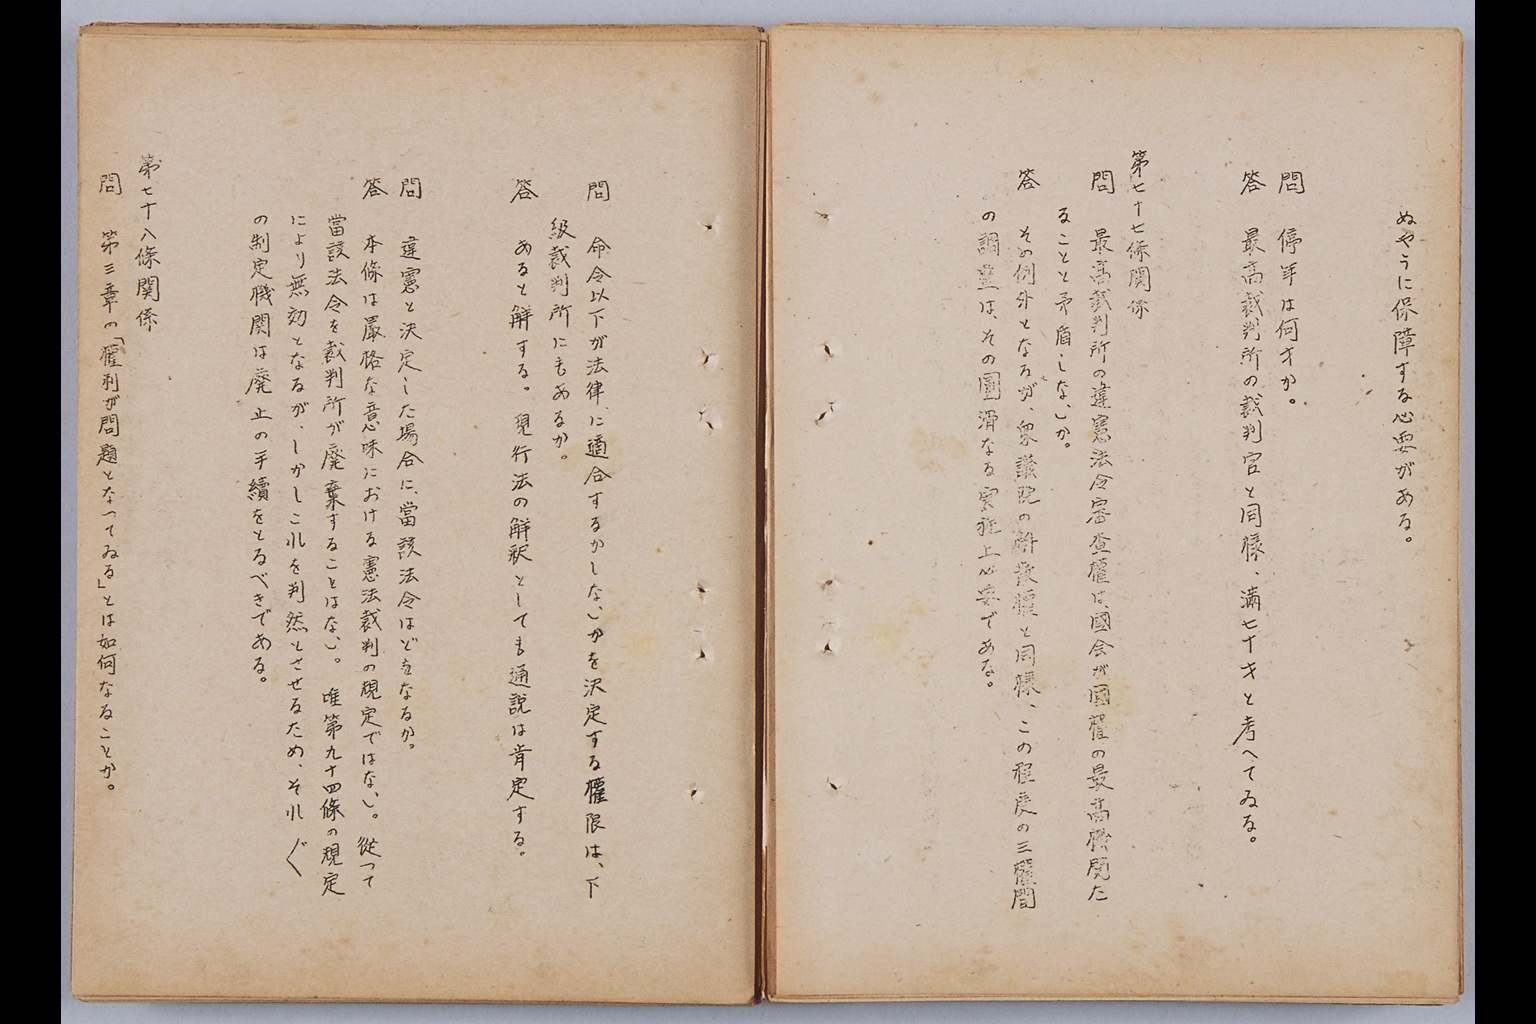 ぬやうに保障する必要がある。
問　停年は何才か。
答　最高裁判所の裁判官と同様、満七十才と考へてゐる。
第七十七條関係
問　最高裁判所の違憲法令審査權は、國会が國權の最高機関た
ることと矛盾しないか。
答　その例外となるが、衆議院の解散權と同様、この程度の三權間
の調整は、その圓滑なる実施上必要である。
問　命令以下が法律に適合するかしないかを決定する權限は、下
級裁判所にもあるか。
答　あると解する。現行法の解釈としても通説は肯定する。
問　違憲と決定した場合に、當該法令はどをなるか。
答　本條は嚴格な意味における憲法裁判の規定ではない。從つて
當該法令を裁判所が廃棄することはない。唯第九十四條の規定
により無効となるが、しかしこれを判然とさせるため、それ〴〵
の制定機関は廃止の手續をとるべきである。
第七十八條関係
問　第三章の「權利が問題となつてゐる」とは如何なることか。